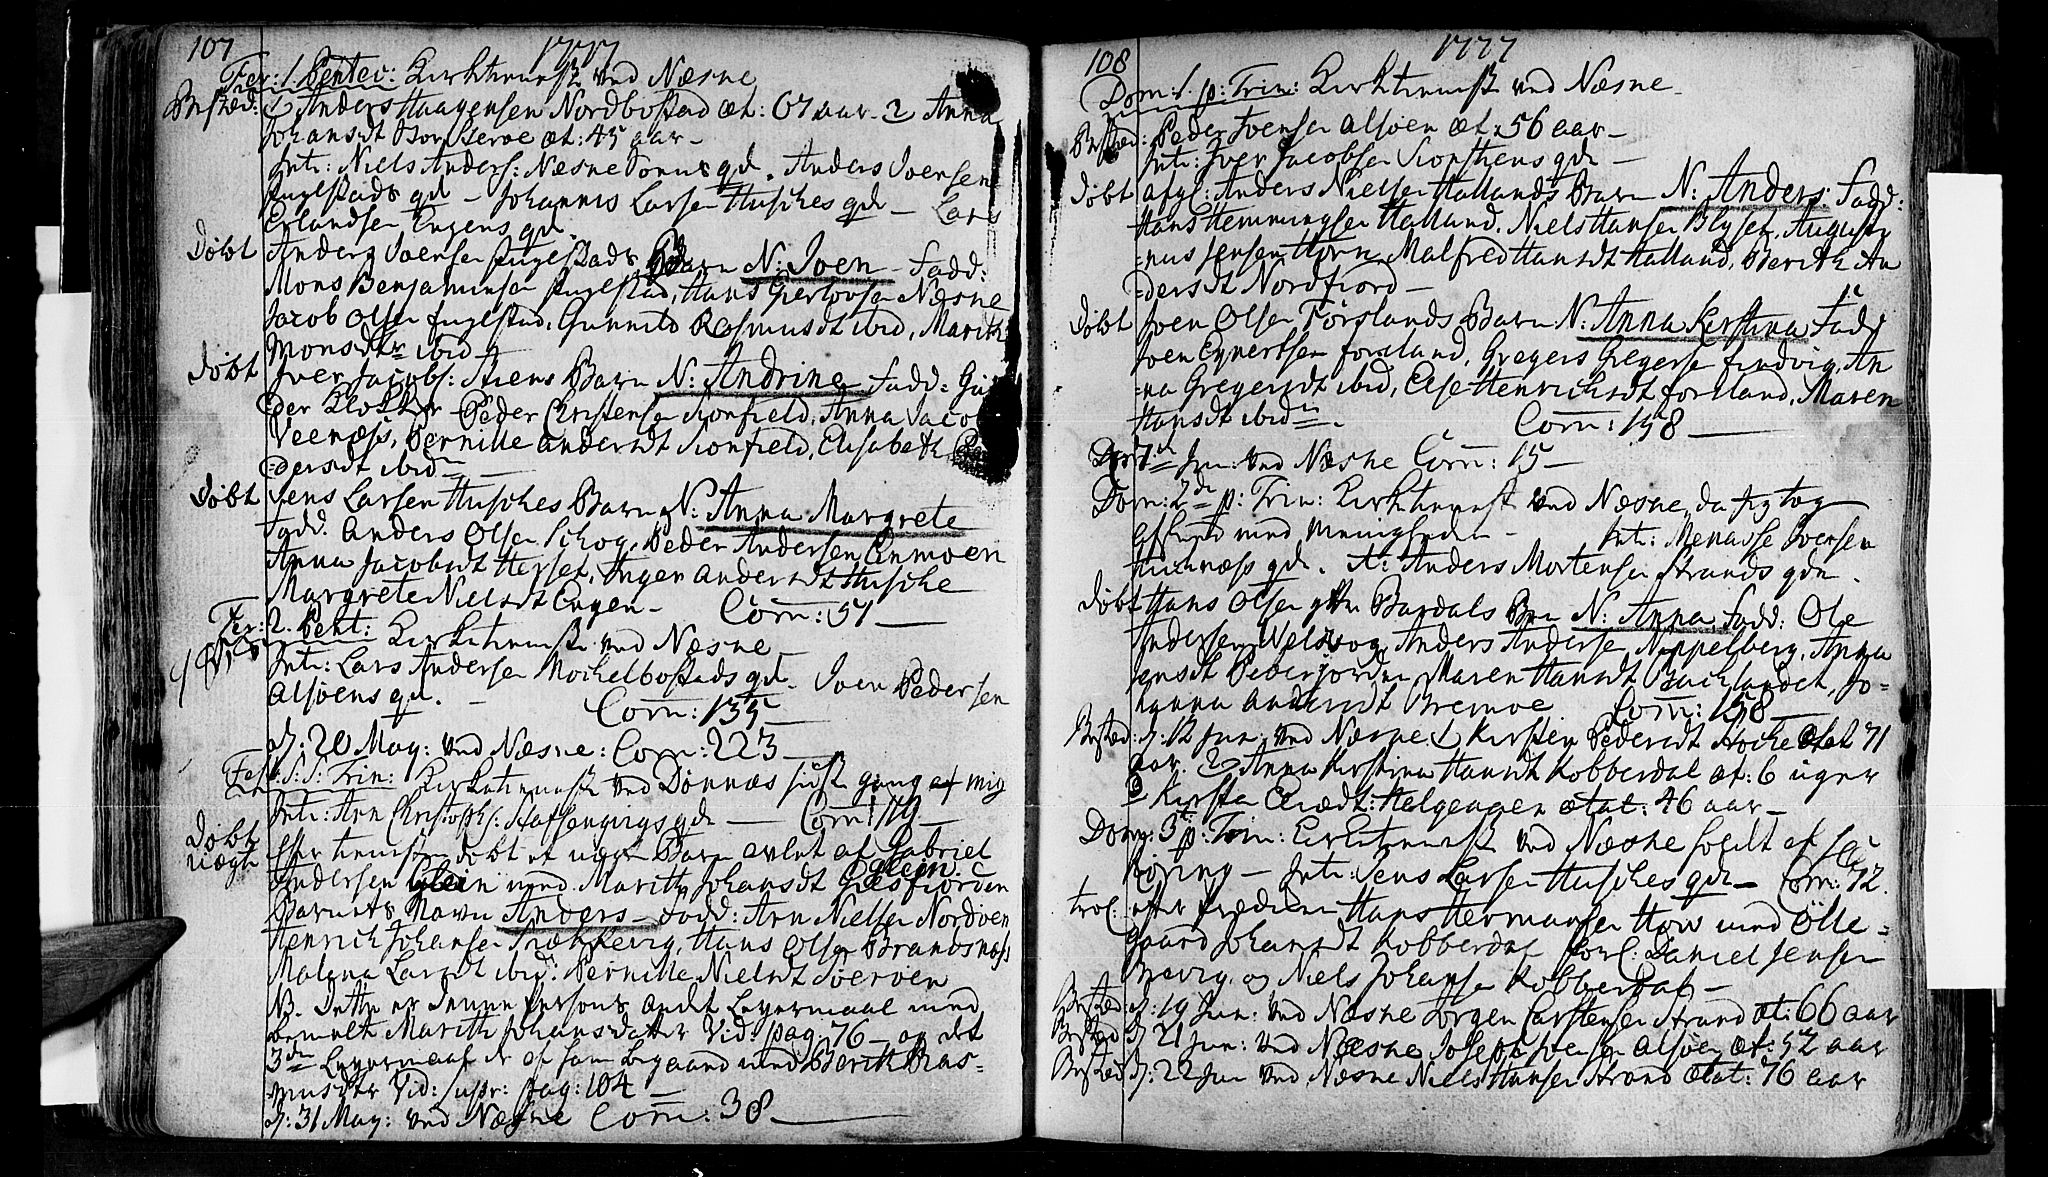 107 1777
Fer: 1. Pentec: Kirketieneste ved Næsne
Bested: 1 Anders Haagensen Nordbostad æt: 67 aar. 2 Anna
Johansdt æt: 45 aar
Intr: Niels Anders: Næsne qd. Anders Joensen
Fuglstads qd - Johannis Larsen Husches qd - Lars
Erlandsen Engens qd.
Døbt Anders Joensen Fuglstads Barn N: Joen - Fadd:
Mons Benjaminsen Fuglstad, Hans Næsne
Jacob Olsen Fuglstad, Gunnild Rasmusdt ibid, Marith
Monsdtr ibid
Døbt Iver Jacobs: Barn N: Andrine Fadd:
Peder Christensen Konfield, Anna Jaco
Veenæss, Pernille Andersdt Konfield, Elisabeth
=dersdt ibid
Døbt Jens Larsen Husches Barn N: Anna Margrete
Fadd. Anders Olsen Schog, Peder Andersen Enmoen
Anna Jacobsdt Hersset, Inger Andersdt Husche
Margrete Nielsdt Engen - Com: 51
Fer: 2. Pent: Kirketieneste ved Næsne
Intr: Lars Andersen Mochelbostads qd. Joen Pedersen
Alsøens qd. Com: 135
d: 20 May: ved Næsne: Com: 223
Fest: S: S: Trin: Kirketieneste ved Dønnæs sidste gang af mig
Intr: Arn Christophs: qd - Com: 119
Døbt Efter tienesten døbt et uægte Barn avlet af Gabriel
uægte Andersen Glein med Marith Johansdt
Barnets Navn Anders - Fadd: Arn Nielsen Nordøen
Henrich Johansen Hans Olsen Brandsnæss
Malena Larsdt ibid: Pernille Nielsdt
NB. Dette er denne Persons andet Leyermaal med
bemelte Marith Johansdatter Vid: pag: 76 - og det
3die Leyermaal er af ham begaaed med Berith Ras=
musdtr Vid: supr: pag: 104 -
d: 31 May: ved Næsne Com: 38
108 1777
Dom: 1. p: Trin: Kirketieneste ved Næsne
Bested: Peder Joensen Alsøen æt: 56 aar -
Intr: Iver Jacobsen qd -
Døbt Anders Nielsen Hallands Barn N: Anders: Fadd:
Hans Hemmingsen Halland, Niels Hansen Augusti
=nus Jensen Horn, Malfred Hansdt Halland, Berith An
=dersdt Nordfiord -
Døbt Joen Olsen Forslands Barn N: Anna Kirstina Fadd
Joen Forsland, Gregers Gregersen Findvig, An
=na Gregersdt ibid, Else Henrichsdt Forsland, Maren
Hansdt ibid. Com: 158
d: 7de Jun: ved Næsne Com: 15 -
Dom: 2de p: Trin: Kirketieneste ved Næsne, da jeg tog
Afskeed med Menigheden - Intr: Menasse Iversen
qd. It: Anders Mortensen Strands qd.
Døbt Hans Olsen Bardals Barn N: Anna Fadd: Ole
Andersen Anders Andersen Nappelberg, Anna
Jensdt Maren Hansdt Jo=
hanna Andersdt Com: 158
Bested: d: 12 Jun: ved Næsne 1 Kirsten Pedersdt ætat 71
aar. 2 Anna Kirstina Hansdt Kobberdal æt: 6 uger
3 Kirsten ætat: 46 aar -
Dom: 3. p: Trin: Kirketieneste ved Næsne holdt af
Intr: Jens Larsen Husches qd - Com: 72.
trol: efter Prædiken Hans Hermansen med Olle=
gaard Johansdt Kobberdal forl: Daniel Jensen
og Niels Johansen Kobberdal -
Bested d: 19 Jun: ved Næsne Jørgen Carstensen Strand æt: 66 aar
Bested d: 21 Jun: ved Næsne Joseph Joensen Alsøen æt: 52 aar
Bested d: 22 Jun ved Næsne Niels Hansen Strand ætat: 76 aar